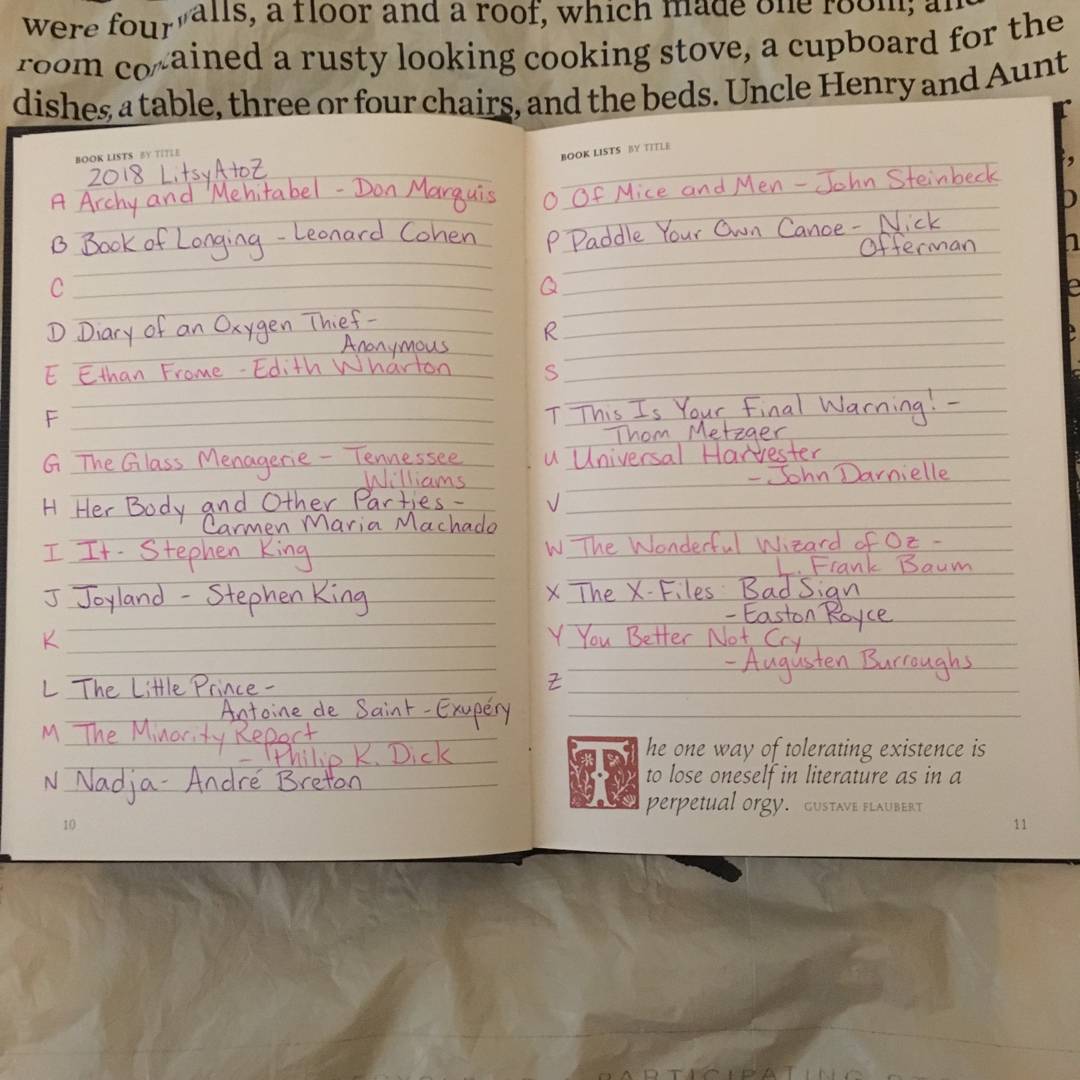 were four walls, a floor and a roof, which made one room;
room contained a rusty looking cooking stove, a cupboard for the
dishes, a table, three or four chairs, and the beds. Uncle Henry and Aunt
BOOK LISTS BY TITLE
2018 LitsyAtoZ
A Archy and Mehitabel - Don Marquis
B Book of Longing - Leonard Cohen
C
D Diary of an Oxygen Thief -
Anonymous
E Ethan Frome - Edith Wharton
F
G The Glass Menagerie - Tennessee
Williams
H Her Body and Other Parties -
Carmen Maria Machado
I It - Stephen King
J Joyland - Stephen King
K
L The Little Prince -
Antoine de Saint-Exupéry
M The Minority Report
- Philip K. Dick
N Nadja - André Breton
10
BOOK LISTS BY TITLE
O Of Mice and Men - John Steinbeck
P Paddle Your Own Canoe - Nick
Offerman
Q
R
S
T This Is Your Final Warning! -
Thom Metzger
U Universal Harvester
- John Darnielle
V
W The Wonderful Wizard of Oz -
L. Frank Baum
X The X-Files: Bad Sign
- Easton Royce
Y You Better Not Cry
- Augusten Burroughs
Z
The one way of tolerating existence is
to lose oneself in literature as in a
perpetual orgy. GUSTAVE FLAUBERT
11
PARTICIPATING